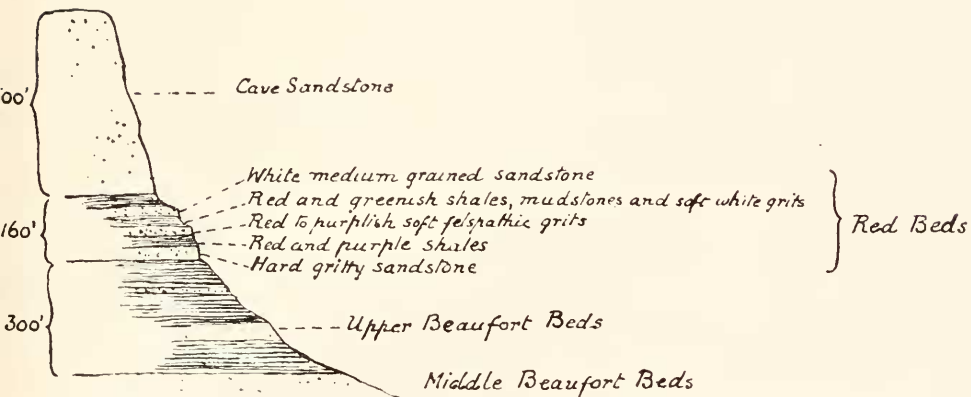 Cave Sandstone
00'
White medium grained sandstone
Red and greenish shales, mudstones and soft white grits
Red to purplish soft felspathic grits
Red and purple shales
Hard gritty sandstone
Red Beds
160'
300'
Upper Beaufort Beds
Middle Beaufort Beds